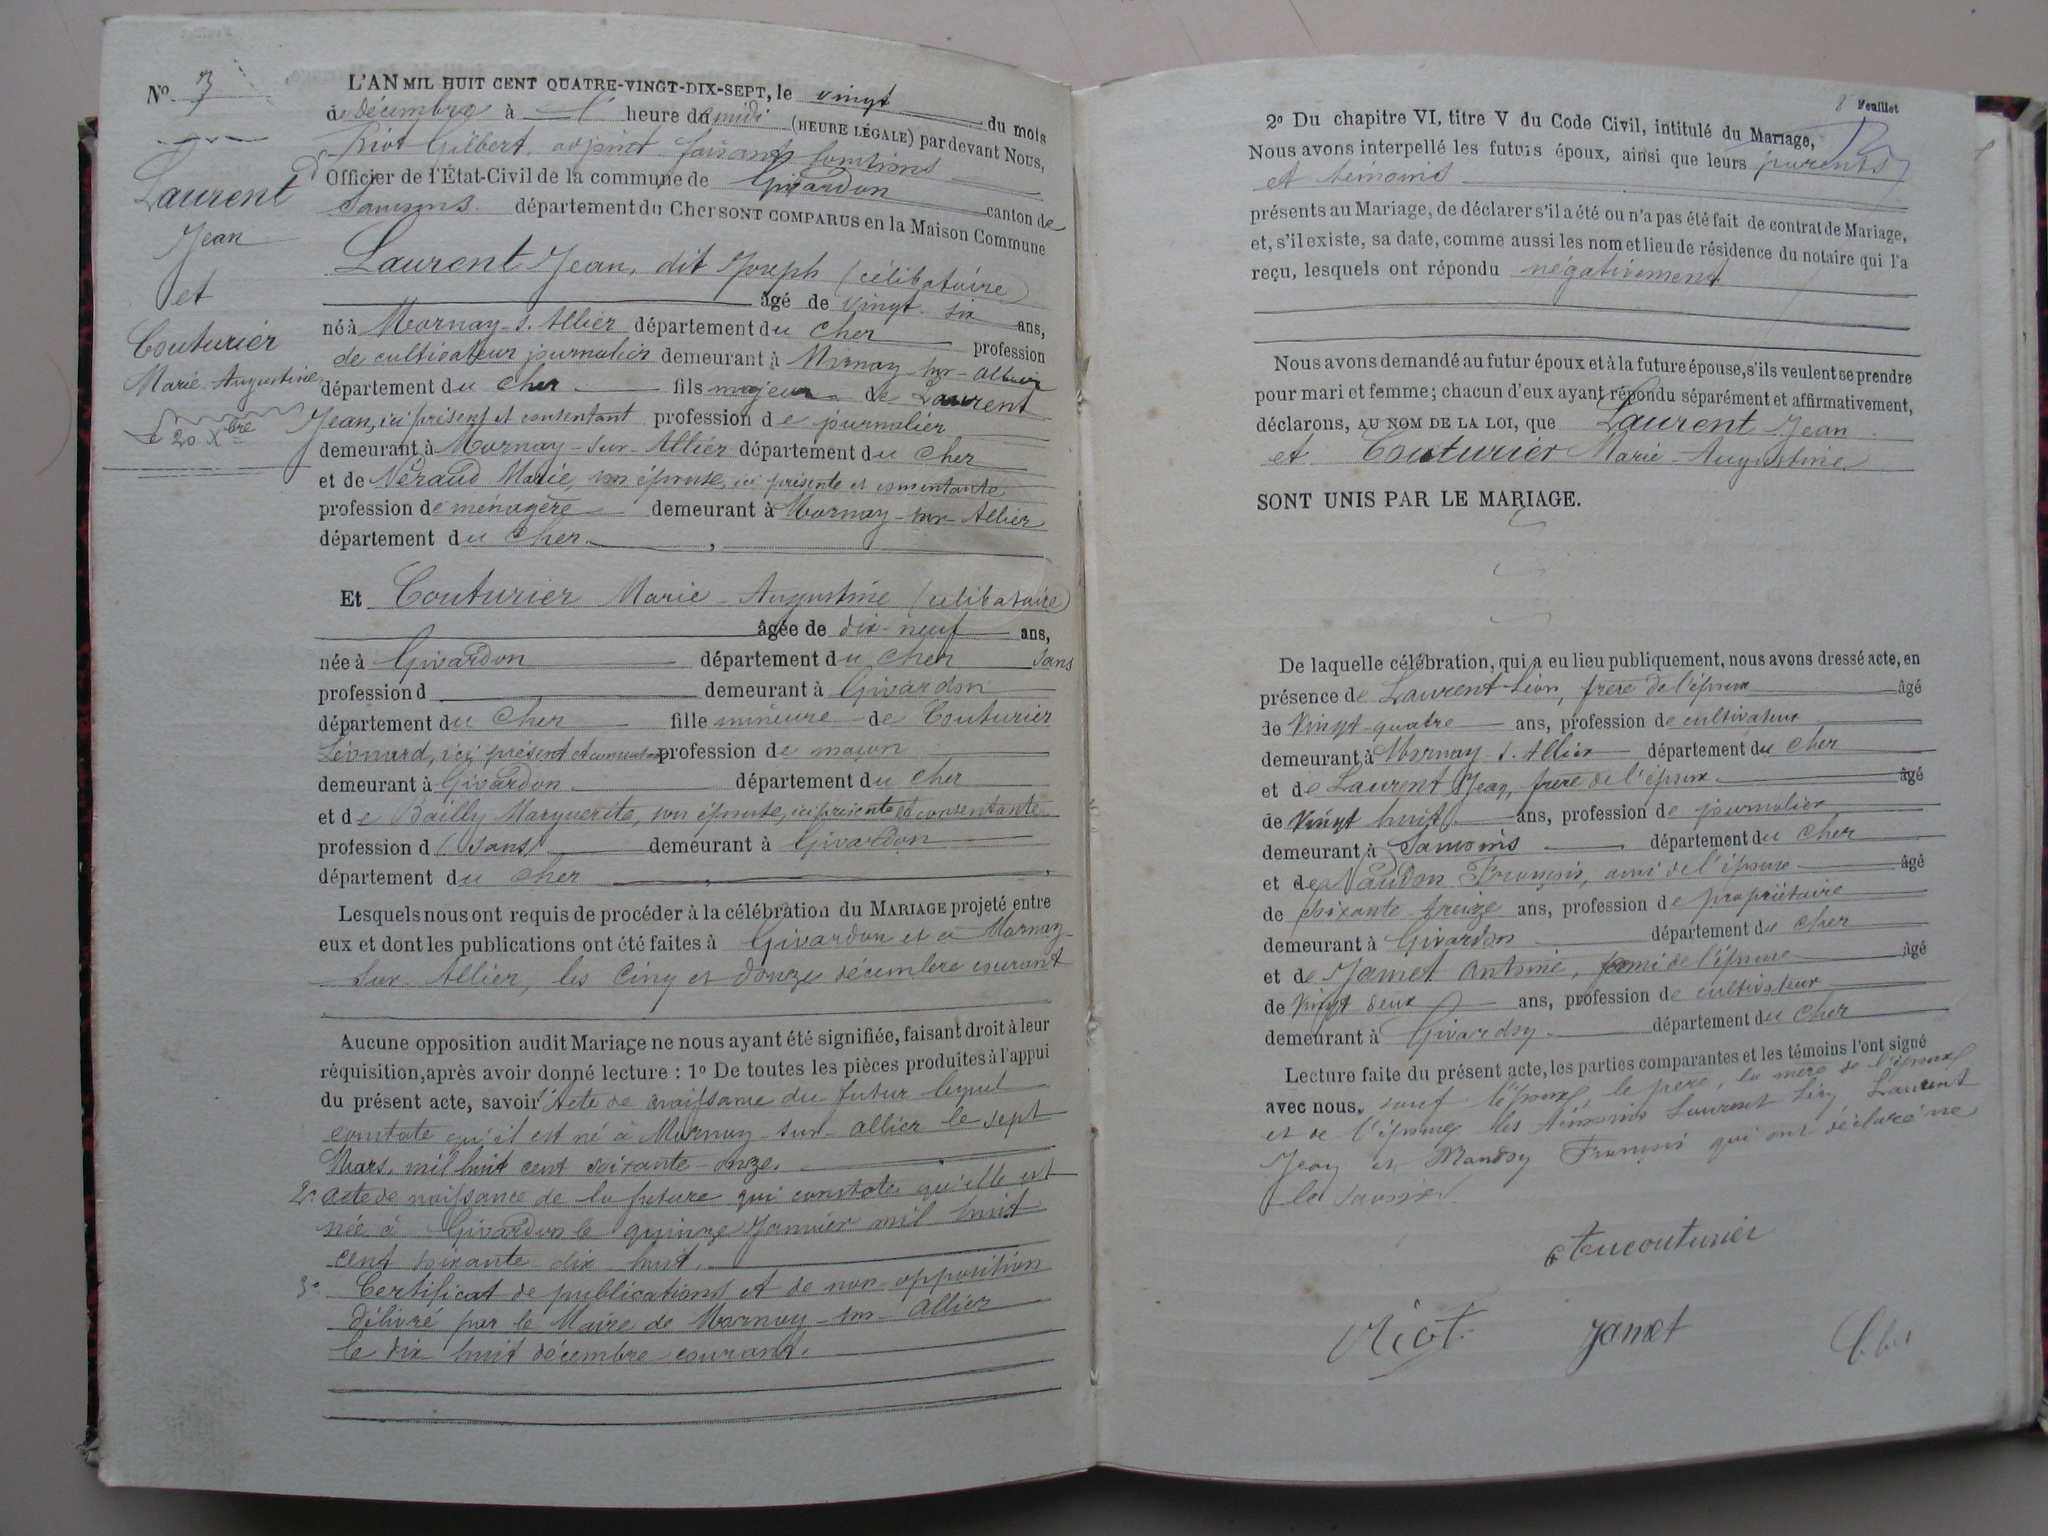 N° 7
Laurent
Jean
et
Couturier
Marie-Augustine
le 20 Xbre
L'AN MIL HUIT CENT QUATRE-VINGT-DIX-SEPT, le vingt du mois
de décembre à heure du midi (HEURE LÉGALE) pardevant Nous,
Riot Gilbert, adjoint faisant fonctions d'
Officier de l'État-Civil de la commune de Givardon canton de
Sancoins département du Cher SONT COMPARUS en la Maison Commune
Laurent Jean, dit Joseph (célibataire)
âgé de vingt-six ans,
né à Mornay-s.-Allier département du Cher profession
de cultivateur journalier demeurant à Mornay-sur-Allier
département du Cher fils majeur de Laurent
Jean, ici présent et consentant profession de journalier
demeurant à Mornay-sur-Allier département du Cher
et de Néraud Marie, son épouse, ici présente et consentante
profession de ménagère demeurant à Mornay-sur-Allier
département du Cher.
Et Couturier Marie-Augustine (célibataire)
âgée de dix-neuf ans,
née à Givardon département du Cher sans
profession d demeurant à Givardon
département du Cher fille mineure de Couturier
Léonard, ici présent et consentant profession de maçon
demeurant à Givardon département du Cher
et de Bailly Marguerite, son épouse, ici présente et consentante
profession d (sans) demeurant à Givardon
département du Cher
Lesquels nous ont requis de procéder à la célébration du MARIAGE projeté entre
eux et dont les publications ont été faites à Givardon et à Mornay-
sur-Allier, les cinq et douze décembre courant
Aucune opposition audit Mariage ne nous ayant été signifiée, faisant droit à leur
réquisition, après avoir donné lecture : 1° De toutes les pièces produites à l'appui
du présent acte, savoir 1° Acte de naissance du futur lequel
constate qu'il est né à Mornay-sur-Allier le sept
Mars, mil huit cent soixante-onze.
2° acte de naissance de la future qui constate qu'elle est
née à Givardon le quinze Janvier mil huit
cent soixante-dix-huit.
3° Certificat de publications et de non-opposition
délivré par le Maire de Mornay-sur-Allier
le dix huit décembre courant.
8 Feuillet
2° Du chapitre VI, titre V du Code Civil, intitulé du Mariage,
Nous avons interpellé les futurs époux, ainsi que leurs parents
et témoins
présents au Mariage, de déclarer s'il a été ou n'a pas été fait de contrat de Mariage,
et, s'il existe, sa date, comme aussi les nom et lieu de résidence du notaire qui l'a
reçu, lesquels ont répondu négativement
Nous avons demandé au futur époux et à la future épouse, s'ils veulent se prendre
pour mari et femme ; chacun d'eux ayant répondu séparément et affirmativement,
déclarons, AU NOM DE LA LOI, que Laurent Jean
et Couturier Marie-Augustine
SONT UNIS PAR LE MARIAGE.
De laquelle célébration, qui a eu lieu publiquement, nous avons dressé acte, en
présence de Laurent Léon, frère de l'époux âgé
de vingt-quatre ans, profession de cultivateur
demeurant à Mornay-s.-Allier département du Cher
et de Laurent Jean, frère de l'époux âgé
de vingt huit ans, profession de journalier
demeurant à Sancoins département du Cher
et de François, ami de l'épouse âgé
de soixante-treize ans, profession de propriétaire
demeurant à Givardon département du Cher
et de Jamet Antoine, ami de l'épouse âgé
de vingt deux ans, profession de cultivateur
demeurant à Givardon département du Cher
Lecture faite du présent acte, les parties comparantes et les témoins l'ont signé
avec nous, sauf l'époux, le père, la mère de l'époux
et de l'épouse les témoins Laurent Léon, Laurent
Jean et François qui ont déclaré ne
le savoir.
Riot Jamet